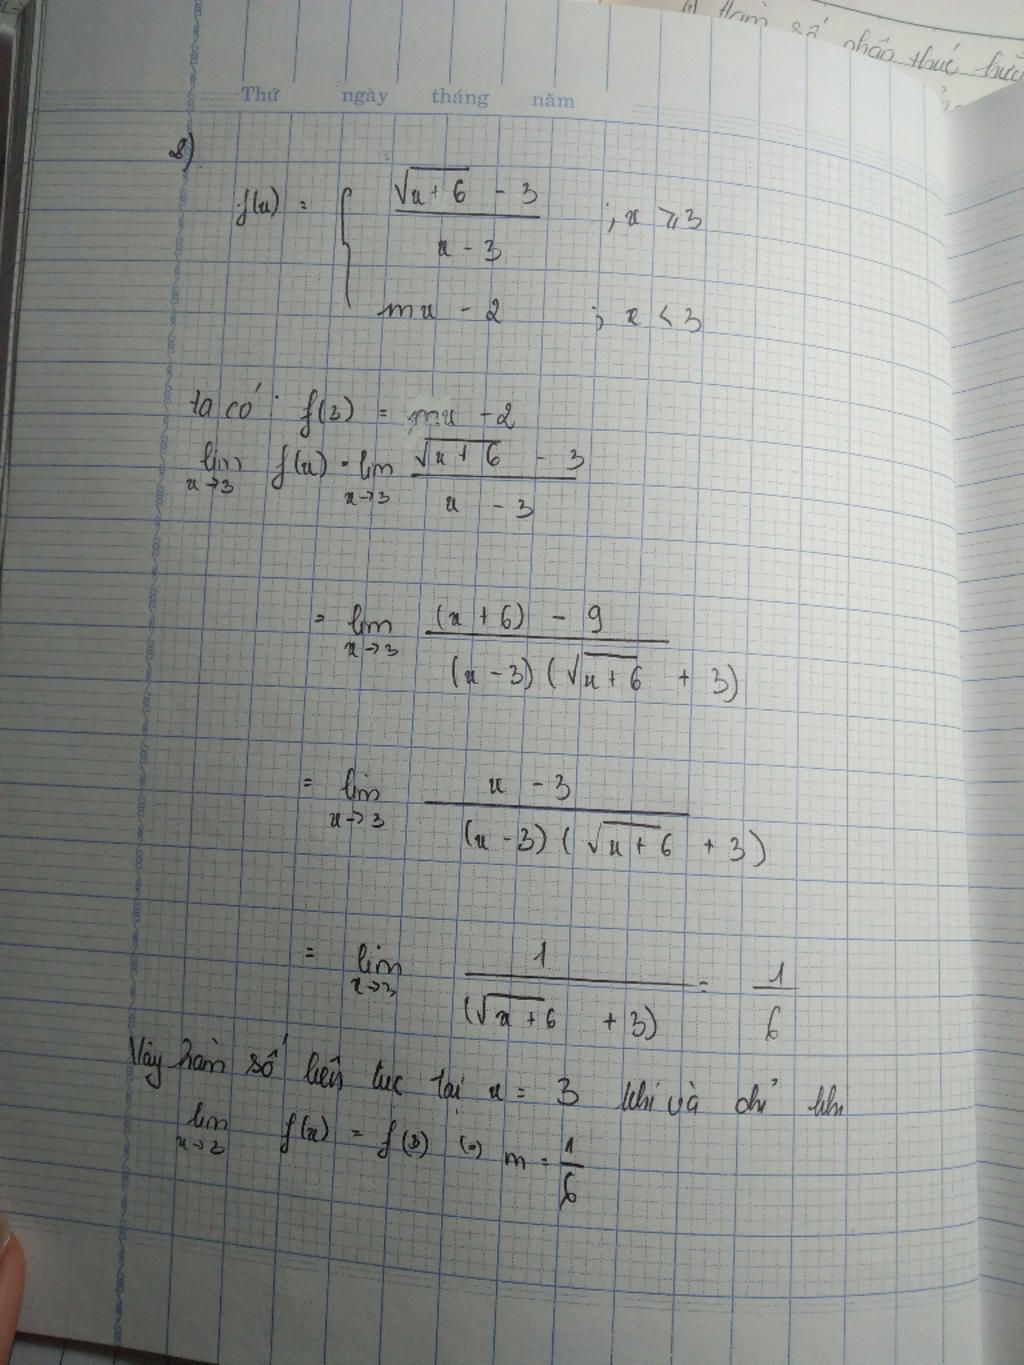 Hàm số phân thức hữu
Thứ ngày tháng năm
8)
f(x) = { (√(x+6) - 3)/(x - 3) ; x ⩾ 3
mx - 2 ; x < 3
ta có: f(3) = mx - 2
lim x→3 f(x) = lim x→3 (√(x+6) - 3)/(x - 3)
= lim x→3 ((x+6) - 9)/((x-3)(√(x+6) + 3))
= lim x→3 (x - 3)/((x-3)(√(x+6) + 3))
= lim x→3 1/(√(x+6) + 3) = 1/6
Vậy hàm số liên tục tại x = 3 khi và chỉ khi
lim x→3 f(x) = f(3) (=) m = 1/6